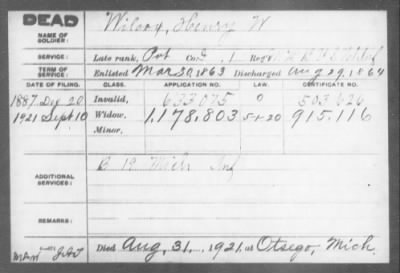 DEAD
NAME OF SOLDIER:
Wilcox, Henry W
SERVICE:
Late rank, Pvt Co. I, 1 Reg't
TERM OF SERVICE:
Enlisted Mar 30, 1863 Discharged Aug 29, 1864
DATE OF FILING. CLASS. APPLICATION NO. LAW. CERTIFICATE NO.
1887 Dec 20 Invalid, 633,075 503,626
1921 Sept 10 Widow, 1,178,803 5-1-20 915,116
Minor,
ADDITIONAL SERVICES:
B 12 Mich Inf
REMARKS:
Died Aug. 31, 1921, at Otsego, Mich.